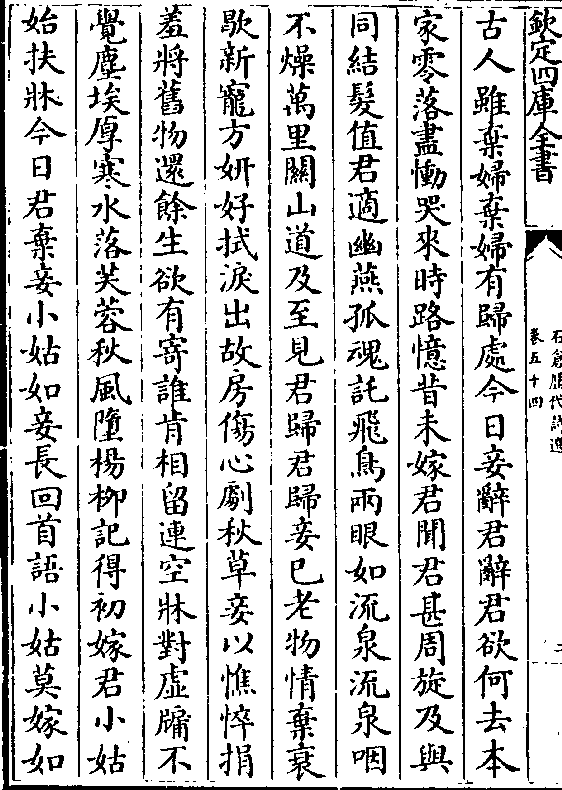 欽定四庫全書
石倉歴代詩選
卷五十四
二
古人雖棄婦棄婦有歸處今日妾辭君辭君欲何去本
家零落盡慟哭來時路憶昔未嫁君聞君甚周旋及與
同結髮值君適幽燕孤魂託飛鳥兩眼如流泉流泉咽
不燥萬里關山道及至見君歸君歸妾已老物情棄衰
歇新寵方妍好拭淚出故房傷心劇秋草妾以憔悴捐
羞將舊物還餘生欲有寄誰肯相留連空牀對虛牖不
覺塵埃厚寒水落芙蓉秋風墮楊柳記得初嫁君小姑
始扶牀今日君棄妾小姑如妾長回首語小姑莫嫁如